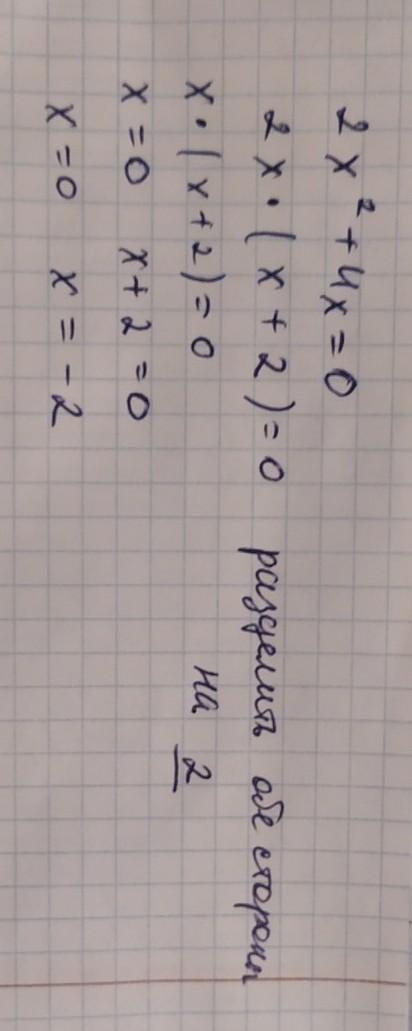 2x² + 4x = 0
2x · (x + 2) = 0 разделить обе стороны
x · (x + 2) = 0 на 2
x = 0 x + 2 = 0
x = 0 x = -2